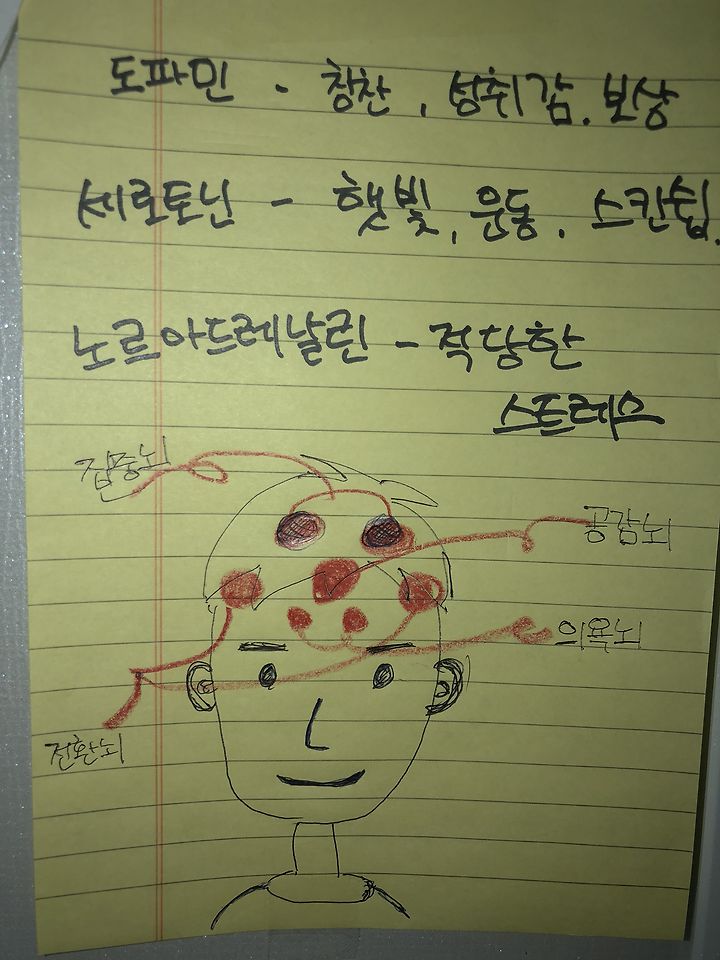 도파민 - 칭찬, 성취감. 보상
세로토닌 - 햇빛, 운동. 스칸쉽.
노르아드레날린 - 적당한
스트레스
집중뇌
공감뇌
의욕뇌
전환뇌